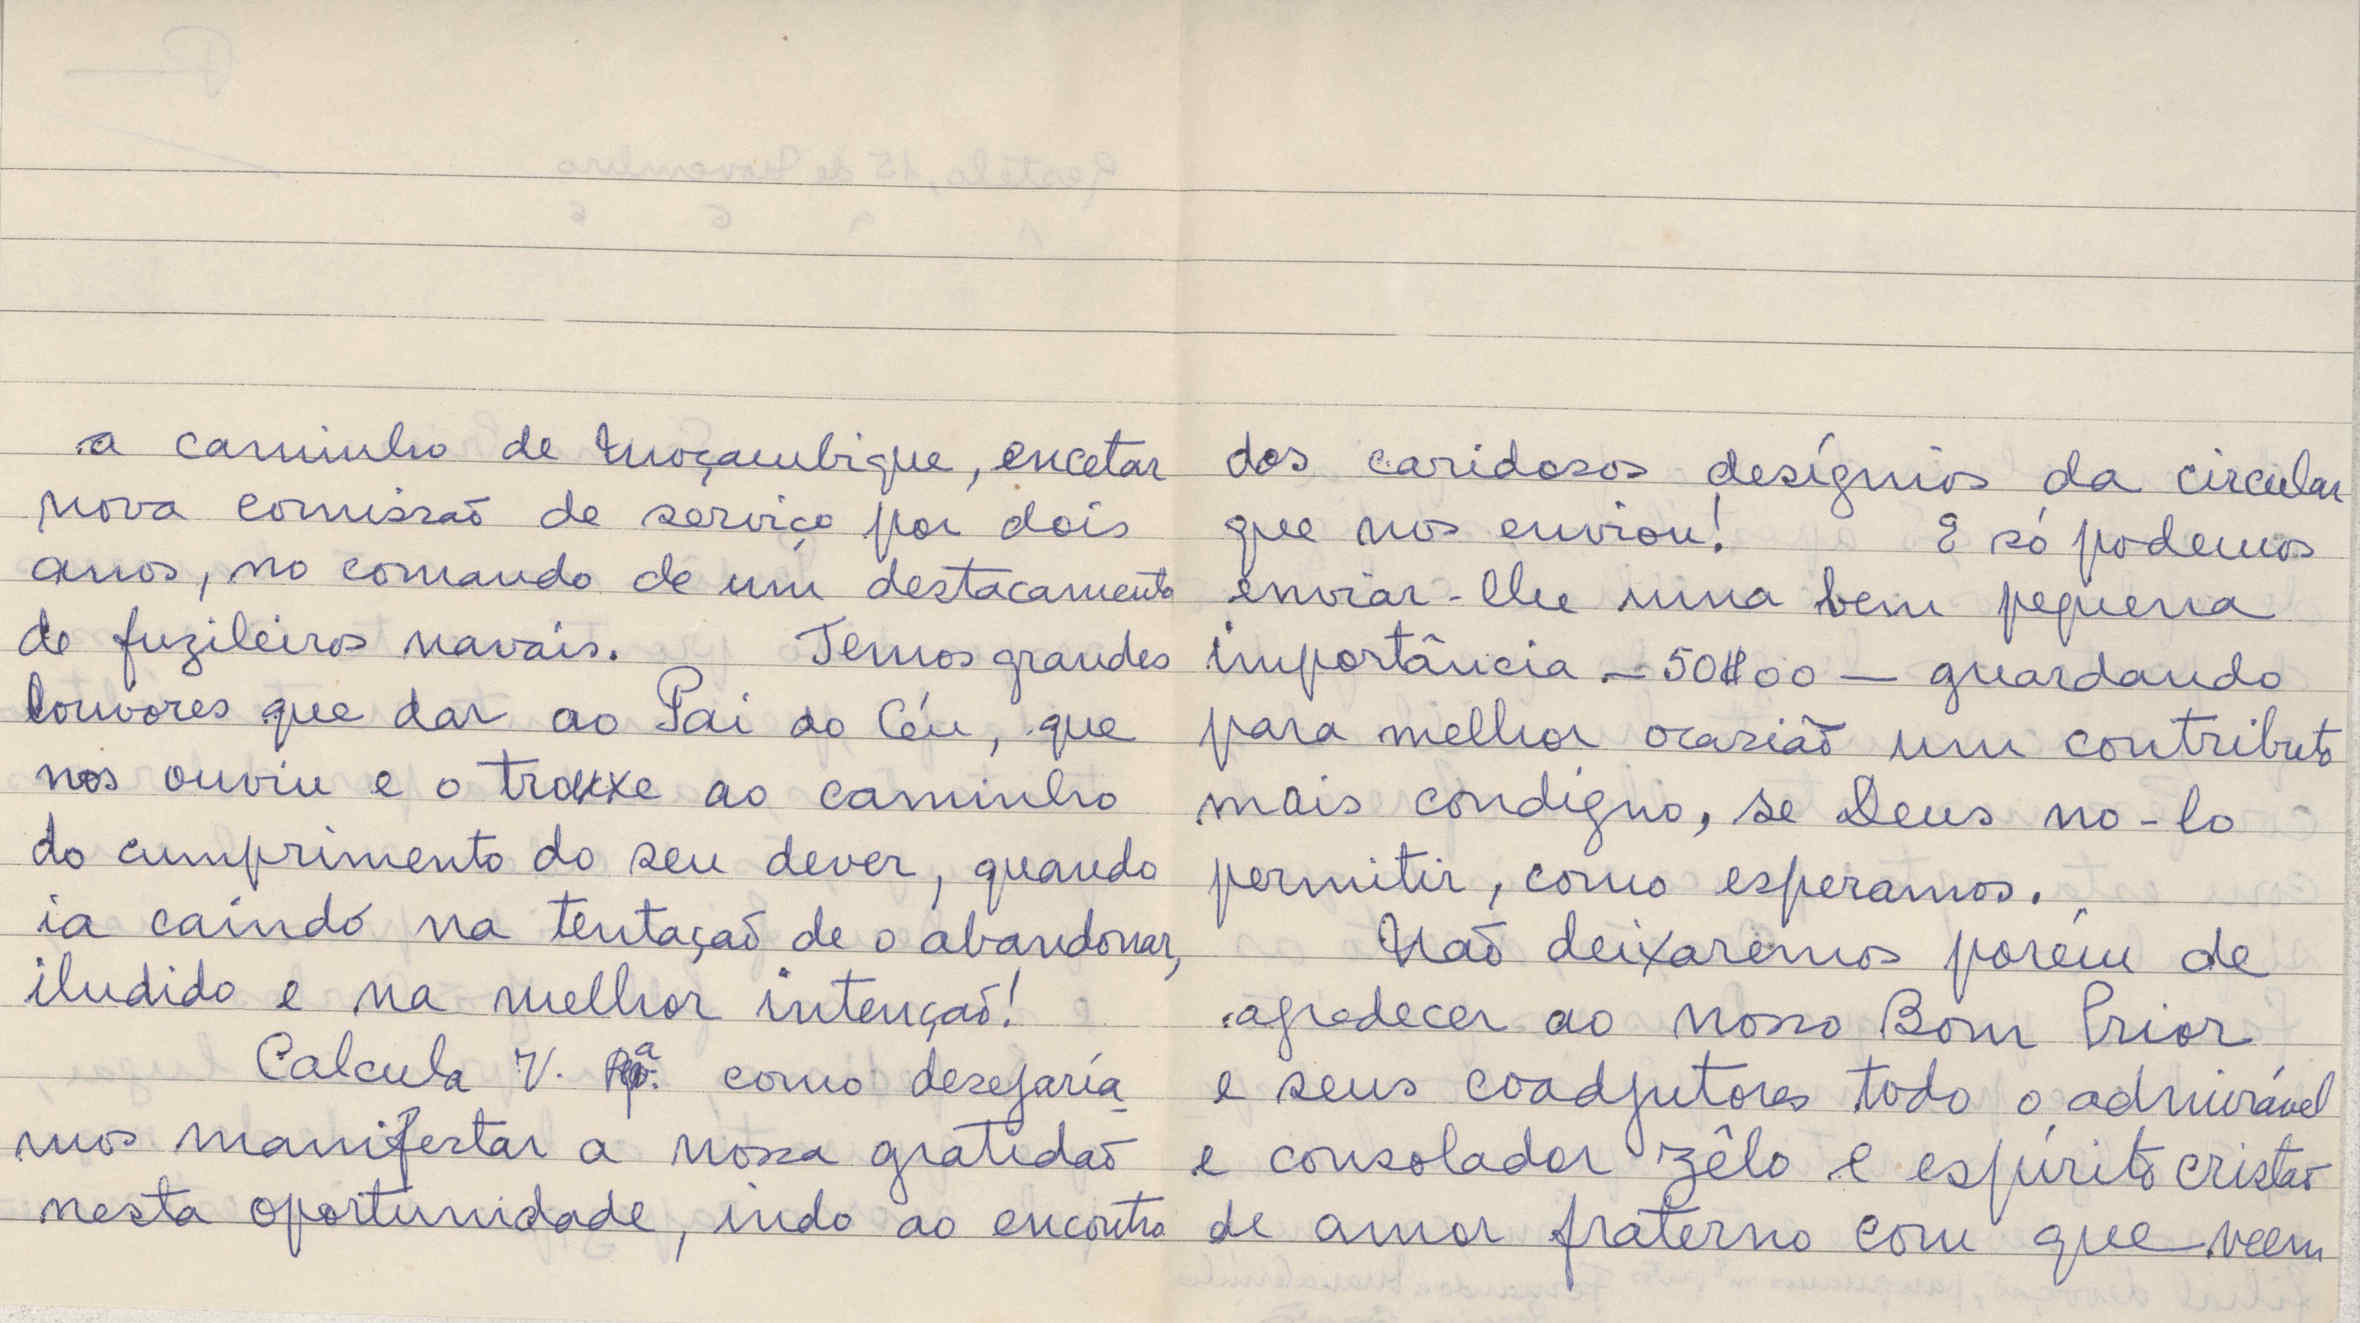 a caminho de Moçambique, encetar
nova comissão de serviço por dois
anos, no comando de um destacamento
de fuzileiros navais. Temos grandes
louvores que dar ao Pai do Céu, que
nos ouviu e o trouxe ao caminho
do cumprimento do seu dever, quando
ia caíndo na tentação de o abandonar,
iludido e na melhor intenção!
Calcula V. como desejaría-
mos manifestar a nossa gratidão
nesta oportunidade, indo ao encontro
dos caridosos desígnios da circular
que nos enviou! E só podemos
enviar-lhe uma bem pequena
importância — 50$00 — guardando
para melhor ocasião um contributo
mais condigno, se Deus no-lo
permitir, como esperamos.
Não deixaremos porém de
agradecer ao nosso Bom Prior
e seus coadjutores todo o admirável
e consolador zêlo e espírito cristão
de amor fraterno com que veem